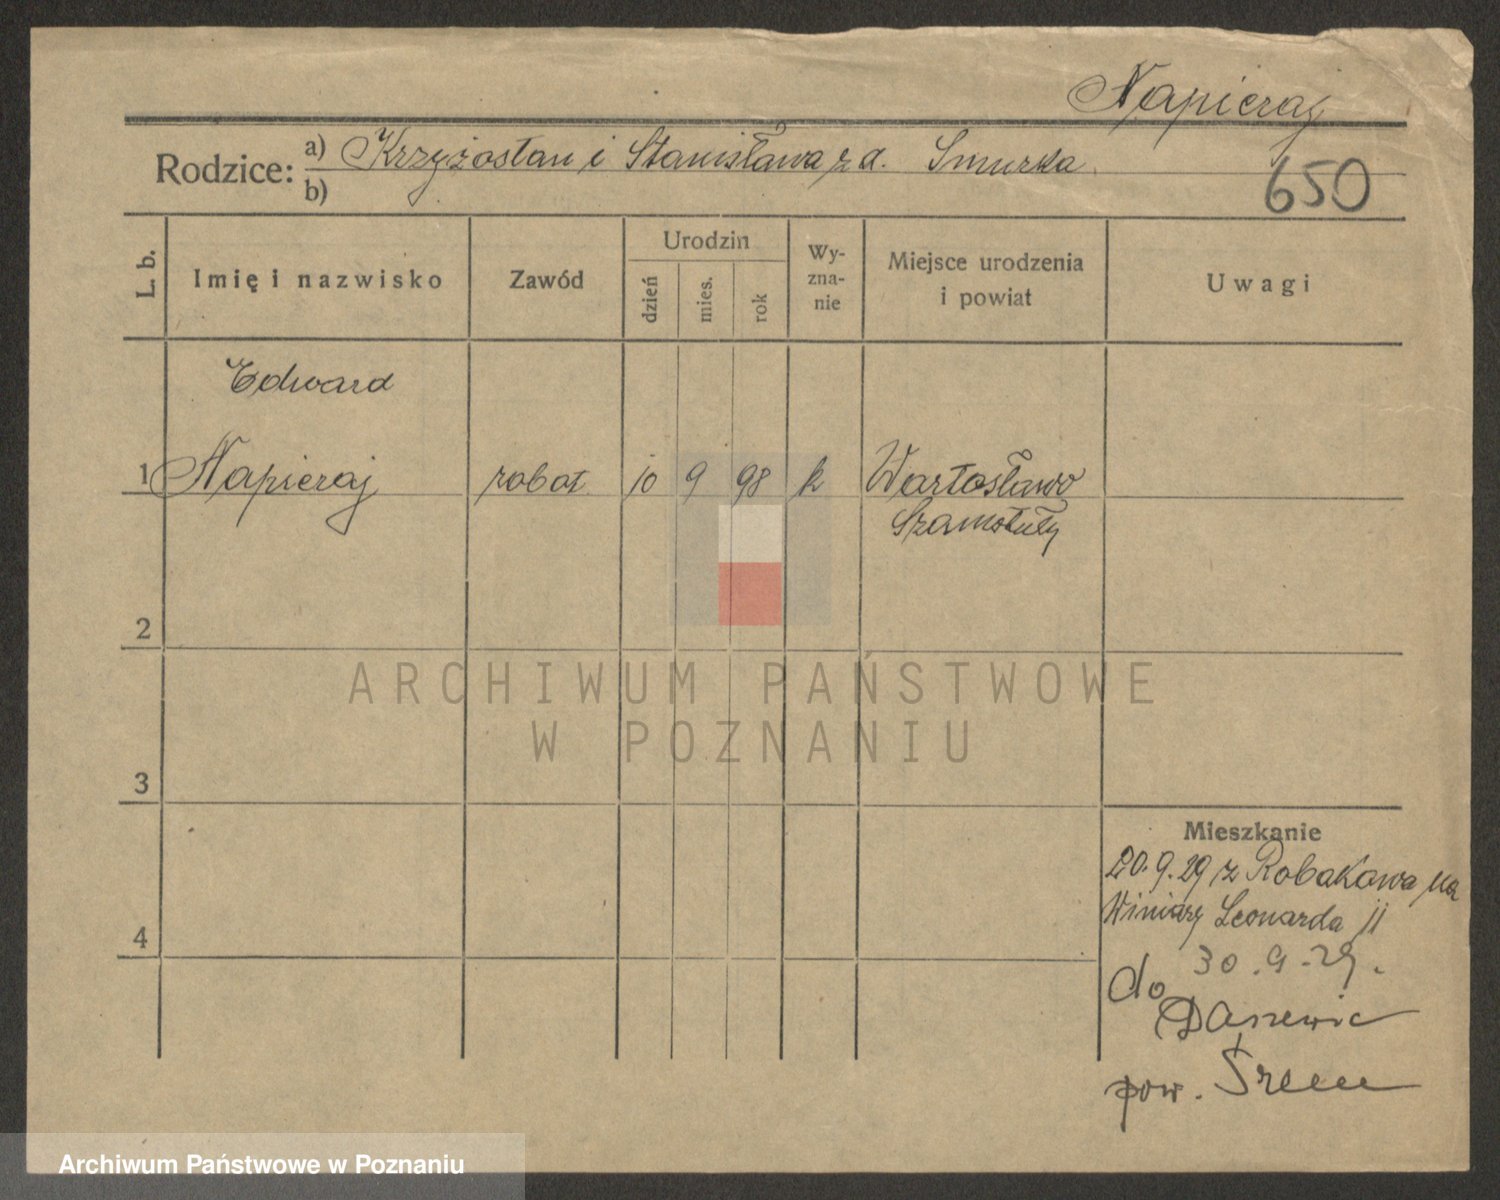 Napieraj
Rodzice: a) Krzyżostan i Stanisława z d. Smurka
b)
650
L. b.
Imię i nazwisko
Zawód
Urodzin
dzień
mies.
rok
Wy-
zna-
nie
Miejsce urodzenia
i powiat
Uwagi
Edward
1 Napieraj robot. 10 9 98 k Wartosławo
Szamotuły
2
3
4
Mieszkanie
20.9.29 z Robakowa na
Winiary Leonarda 11
30.9.29.
do Daszewic
pow. Śrem
ARCHIWUM PAŃSTWOWE
W POZNANIU
Archiwum Państwowe w Poznaniu